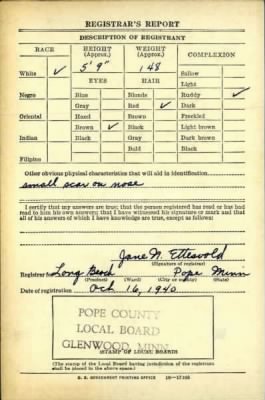 REGISTRAR'S REPORT
DESCRIPTION OF REGISTRANT
RACE HEIGHT (Approx.) WEIGHT (Approx.) COMPLEXION
White ✓ 5' 9" 148 Sallow
Light
EYES HAIR
Negro Blue Blonde Ruddy ✓
Gray Red ✓ Dark
Oriental Hazel Brown Freckled
Brown ✓ Black Light brown
Indian Black Gray Dark brown
Bald Black
Filipino
Other obvious physical characteristics that will aid in identification
small scar on nose
I certify that my answers are true; that the person registered has read or has had
read to him his own answers; that I have witnessed his signature or mark and that
all of his answers of which I have knowledge are true, except as follows:
Jane N. Ettesvold
(Signature of registrar)
Registrar for Long Beach Pope Minn
(Precinct) (Ward) (City or county) (State)
Date of registration Oct 16, 1940
POPE COUNTY
LOCAL BOARD
GLENWOOD, MINN
(STAMP OF LOCAL BOARD)
(The stamp of the Local Board having jurisdiction of the registrant
shall be placed in the above space.)
U. S. GOVERNMENT PRINTING OFFICE